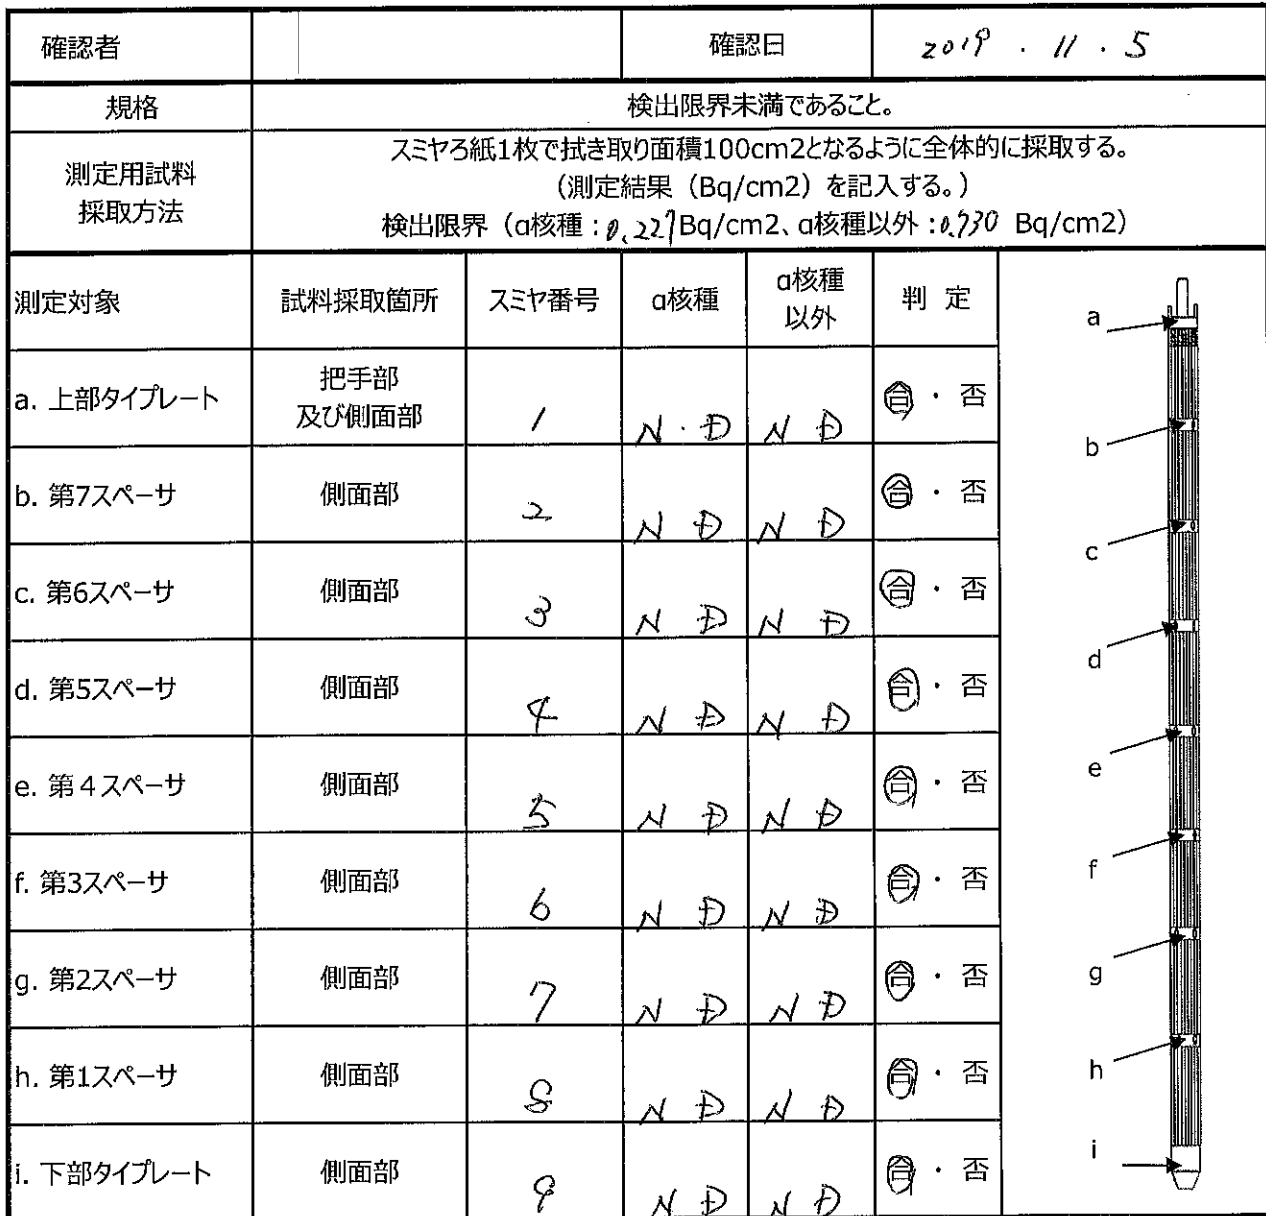 確認者 確認日 2019 . 11 . 5
規格 検出限界未満であること。
測定用試料
採取方法
スミヤろ紙1枚で拭き取り面積100cm2となるように全体的に採取する。
(測定結果(Bq/cm2)を記入する。)
検出限界(α核種:0.227Bq/cm2、α核種以外:0.930 Bq/cm2)
測定対象 試料採取箇所 スミヤ番号 α核種 α核種以外 判 定
a. 上部タイプレート 把手部及び側面部 1 N・D N D 合・否
b. 第7スペーサ 側面部 2 N D N D 合・否
c. 第6スペーサ 側面部 3 N D N D 合・否
d. 第5スペーサ 側面部 4 N D N D 合・否
e. 第4スペーサ 側面部 5 N D N D 合・否
f. 第3スペーサ 側面部 6 N D N D 合・否
g. 第2スペーサ 側面部 7 N D N D 合・否
h. 第1スペーサ 側面部 8 N D N D 合・否
i. 下部タイプレート 側面部 9 N D N D 合・否
a
b
c
d
e
f
g
h
i